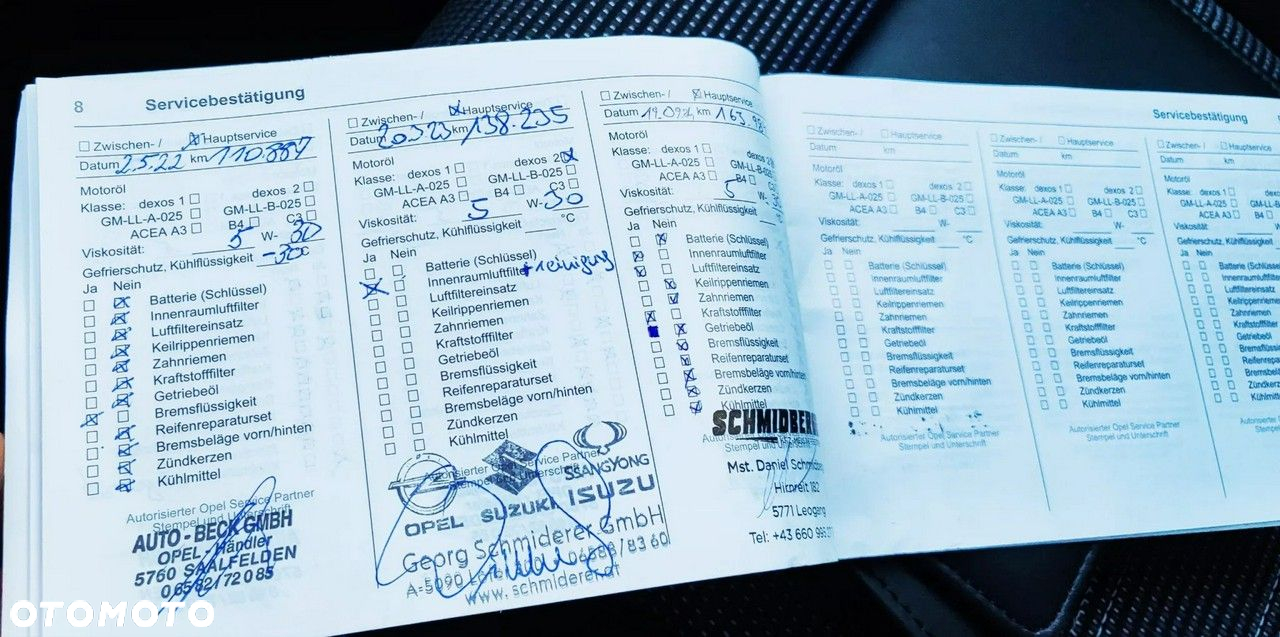 8 Servicebestätigung
Zwischen- / Hauptservice
Datum 2.5.22 km 110.887
Motoröl
Klasse: dexos 1 dexos 2
GM-LL-A-025 GM-LL-B-025
ACEA A3 B4 C3
Viskosität: 5 W- 30
Gefrierschutz, Kühlflüssigkeit
Ja Nein
Batterie (Schlüssel)
Innenraumluftfilter
Luftfiltereinsatz
Keilrippenriemen
Zahnriemen
Kraftstofffilter
Getriebeöl
Bremsflüssigkeit
Reifenreparaturset
Bremsbeläge vorn/hinten
Zündkerzen
Kühlmittel
Autorisierter Opel Service Partner
Stempel und Unterschrift
AUTO - BECK GMBH
OPEL - Händler
5760 SAALFELDEN
06582/72085
Zwischen- / Hauptservice
Datum km 138.235
Motoröl
Klasse: dexos 1 dexos 2
GM-LL-A-025 GM-LL-B-025
ACEA A3 B4 C3
Viskosität: 5 W- 30
Gefrierschutz, Kühlflüssigkeit °C
Ja Nein
Batterie (Schlüssel)
Innenraumluftfilter +reinigung
Luftfiltereinsatz
Keilrippenriemen
Zahnriemen
Kraftstofffilter
Getriebeöl
Bremsflüssigkeit
Reifenreparaturset
Bremsbeläge vorn/hinten
Zündkerzen
Kühlmittel
Autorisierter Opel Service Partner
Stempel und Unterschrift
OPEL SUZUKI SSANGYONG
ISUZU
Georg Schmiderer GmbH
A-5090 06588/8360
www.schmiderer.at
Zwischen- / Hauptservice
Datum km
Motoröl
Klasse: dexos 1 dexos 2
GM-LL-A-025 GM-LL-B-025
ACEA A3 B4
Viskosität: 5 W-
Gefrierschutz, Kühlflüssigkeit
Ja Nein
Batterie (Schlüssel)
Innenraumluftfilter
Luftfiltereinsatz
Keilrippenriemen
Zahnriemen
Kraftstofffilter
Getriebeöl
Bremsflüssigkeit
Reifenreparaturset
Bremsbeläge vorn/hinten
Zündkerzen
Kühlmittel
Stempel und Unterschrift
Mst. Daniel
5771 Leogang
Tel: +43 660
Servicebestätigung
Zwischen- / Hauptservice
Datum km
Motoröl
Klasse: dexos 1 dexos 2
GM-LL-A-025 GM-LL-B-025
ACEA A3 B4 C3
Viskosität: W-
Gefrierschutz, Kühlflüssigkeit °C
Ja Nein
Batterie (Schlüssel)
Innenraumluftfilter
Luftfiltereinsatz
Keilrippenriemen
Zahnriemen
Kraftstofffilter
Getriebeöl
Bremsflüssigkeit
Reifenreparaturset
Bremsbeläge vorn/hinten
Zündkerzen
Kühlmittel
Autorisierter Opel Service Partner
Stempel und Unterschrift
Zwischen- / Hauptservice
Datum km
Motoröl
Klasse: dexos 1 dexos 2
GM-LL-A-025 GM-LL-B-025
ACEA A3 B4 C3
Viskosität: W-
Gefrierschutz, Kühlflüssigkeit °C
Ja Nein
Batterie (Schlüssel)
Innenraumluftfilter
Luftfiltereinsatz
Keilrippenriemen
Zahnriemen
Kraftstofffilter
Getriebeöl
Bremsflüssigkeit
Reifenreparaturset
Bremsbeläge vorn/hinten
Zündkerzen
Kühlmittel
Autorisierter Opel Service Partner
Stempel und Unterschrift
Zwischen- /
Datum km
Motoröl
Klasse: dexos 1
GM-LL-A-025
ACEA A3 B4
Viskosität:
Gefrierschutz, Kühlflüssigkeit
Ja Nein
OTOMOTO